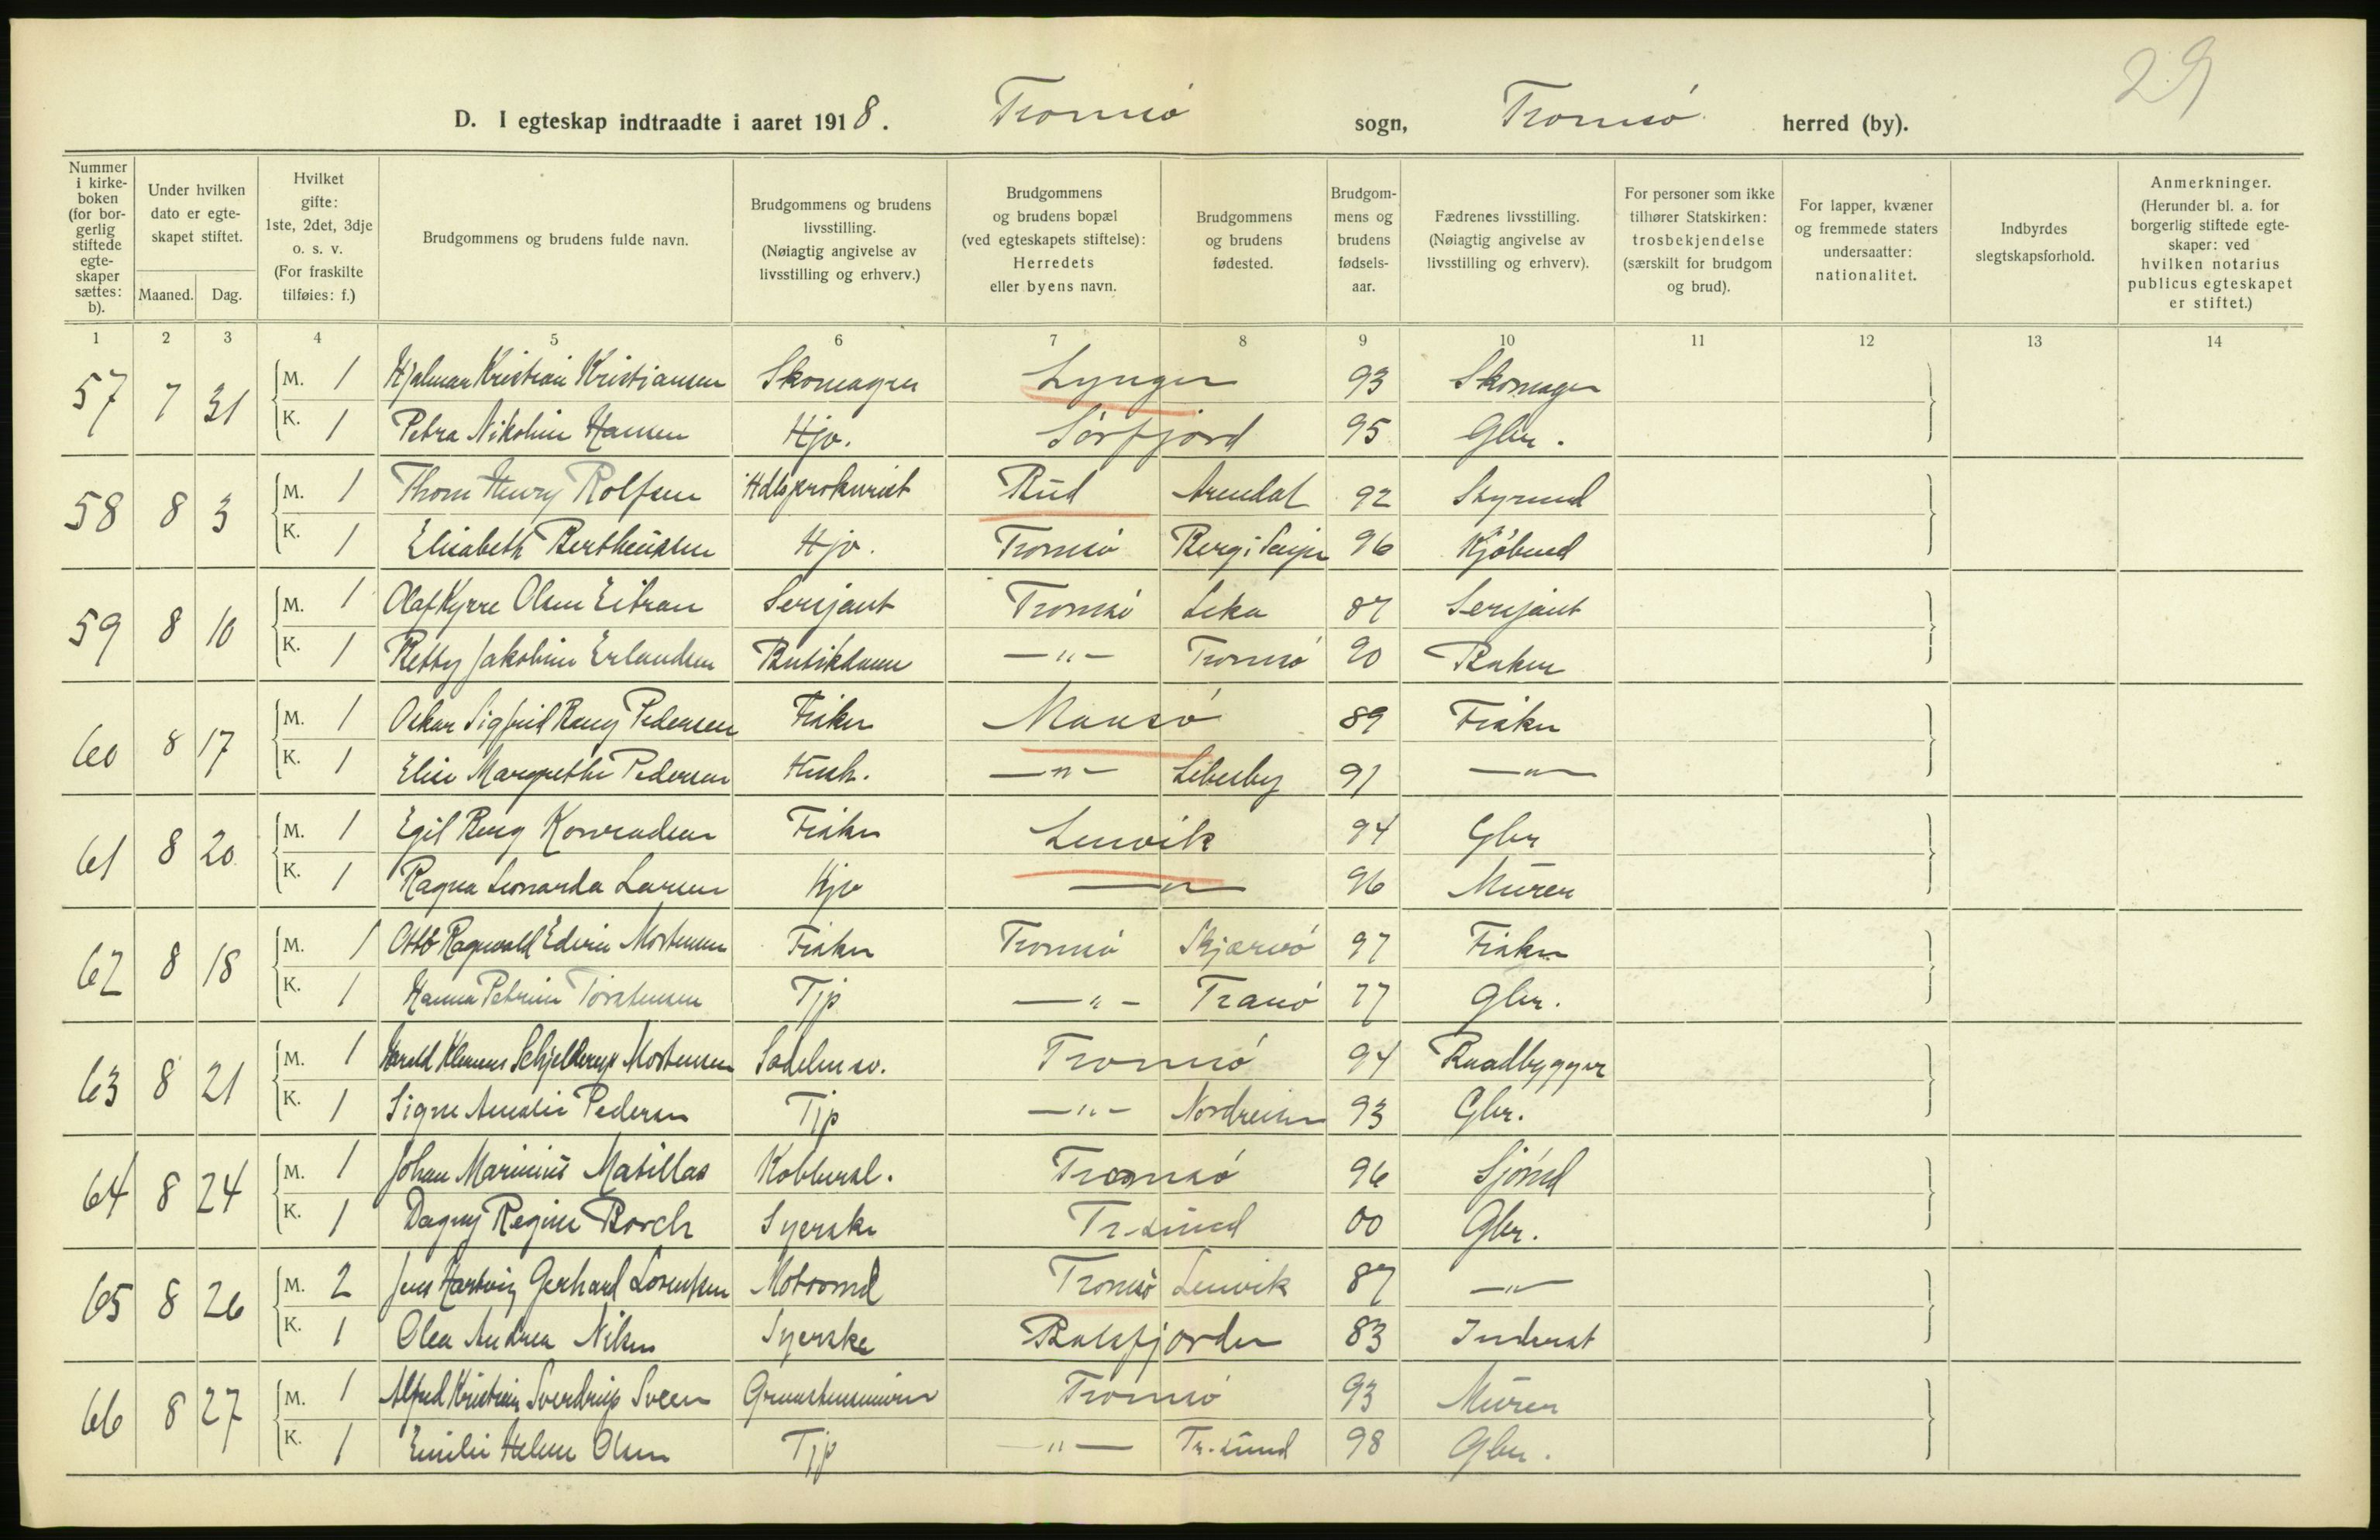 29
D. I egteskap indtraadte i aaret 1918. Tromsö sogn, Tromsö herred (by).
Nummer i kirkeboken (for borgerlig stiftede egteskaper sættes: b).
Under hvilken dato er egteskapet stiftet.
Maaned. Dag.
Hvilket gifte: 1ste, 2det, 3dje o. s. v. (For fraskilte tilføies: f.)
Brudgommens og brudens fulde navn.
Brudgommens og brudens livsstilling. (Nøiagtig angivelse av livsstilling og erhverv.)
Brudgommens og brudens bopæl (ved egteskapets stiftelse): Herredets eller byens navn.
Brudgommens og brudens fødested.
Brudgommens og brudens fødselsaar.
Fædrenes livsstilling. (Nøiagtig angivelse av livsstilling og erhverv).
For personer som ikke tilhører Statskirken: trosbekjendelse (særskilt for brudgom og brud).
For lapper, kvæner og fremmede staters undersaatter: nationalitet.
Indbyrdes slegtskapsforhold.
Anmerkninger. (Herunder bl. a. for borgerlig stiftede egteskaper: ved hvilken notarius publicus egteskapet er stiftet.)
1 2 3 4 5 6 7 8 9 10 11 12 13 14
57 7 31 M. 1 Hjalmar Kristian Kristiansen Skomager Lyngen 93 Skomager
K. 1 Petra Nikoline Hansen Hjv. Sörfjord 95 Gbr.
58 8 3 M. 1 Thom Henry Rolfsen Hdlsprokurist Bud Arendal 92 Styrmd
K. 1 Elisabeth Bertheussen Hjv. Tromsö Berg i Senjen 96 Kjöbmd
59 8 10 M. 1 Olaf Kyrre Olsen Eitran Sersjant Tromsö Leka 87 Sersjant
K. 1 Betty Jakobine Erlandsen Butikdame —"— Tromsö 90 Baker
60 8 17 M. 1 Oskar Sigfrid Berg Pedersen Fisker Maasö 89 Fisker
K. 1 Elise Margrethe Pedersen Hush. —"— Lebesby 91 —"—
61 8 20 M. 1 Egil Berg Konradsen Fisker Lenvik 94 Gbr
K. 1 Ragna Leonarda Larsen Hjv —"— 96 Murer
62 8 18 M. 1 Otto Ragnvald Edvin Mortensen Fisker Tromsö Skjærvö 97 Fisker
K. 1 Hanna Petrine Torstensen Tjp —"— Tranö 77 Gbr.
63 8 21 M. 1 Harald Klemens Schjelderup Mortensen Sadelm sv. Tromsö 94 Baadbygger
K. 1 Signe Amalie Pedersen Tjp —"— Nordreisen 93 Gbr.
64 8 24 M. 1 Johan Marinius Matillas Kobbersl. Tromsö 96 Sjömd
K. 1 Dagny Regine Borch Syerske Tr-sund 00 Gbr.
65 8 26 M. 2 Jens Hartvig Gerhard Lorentsen Motormd Tromsö Lenvik 87 —"—
K. 1 Olea Andrea Nilsen Syerske Balsfjorden 83 Inderst
66 8 27 M. 1 Alfred Kristian Sverdrup Sveen Graastensmurer Tromsö 93 Murer
K. 1 Emilie Helene Olsen Tjp —"— Tr.sund 98 Gbr.